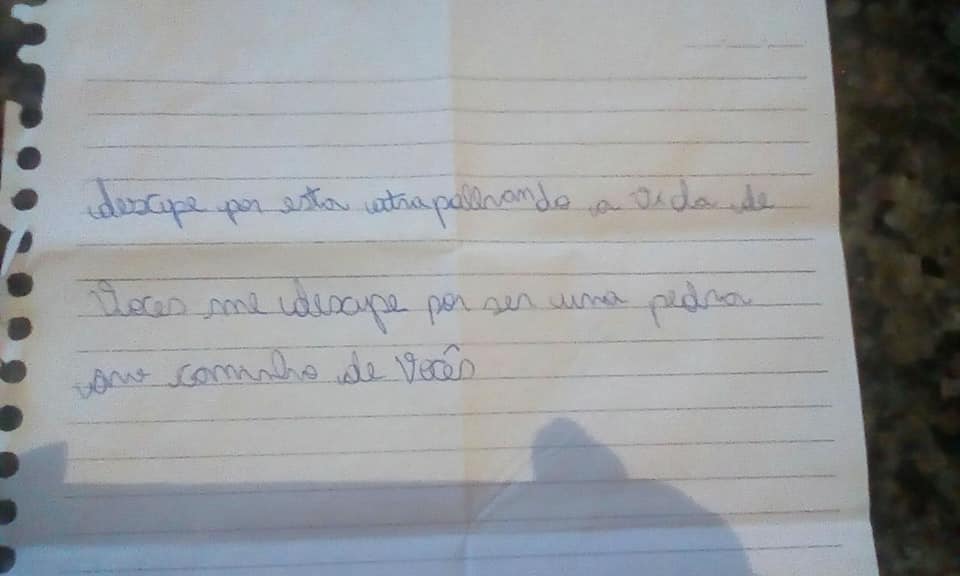 descupe por esta atrapalhando a vida de
Voces me descupe por ser uma pedra
no caminho de Vocês